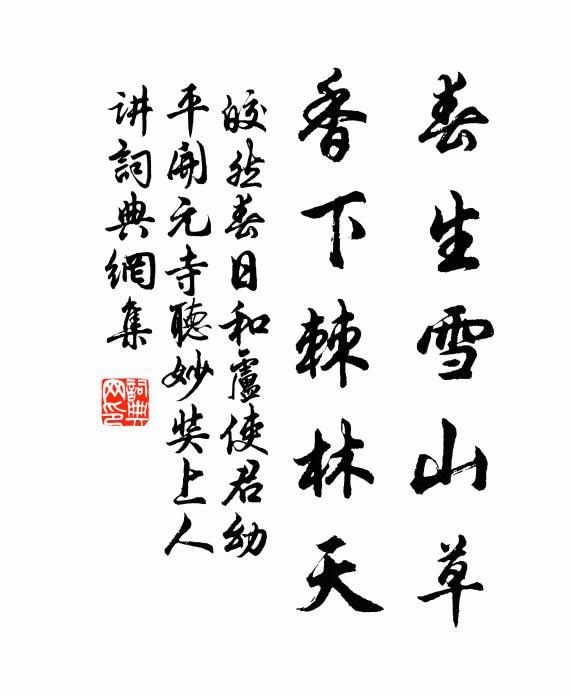 春生雪山草
香下棘林天
皎然春日和盧使君幼
平開元寺聽妙奘上人
讲詞典網集
詞典网印